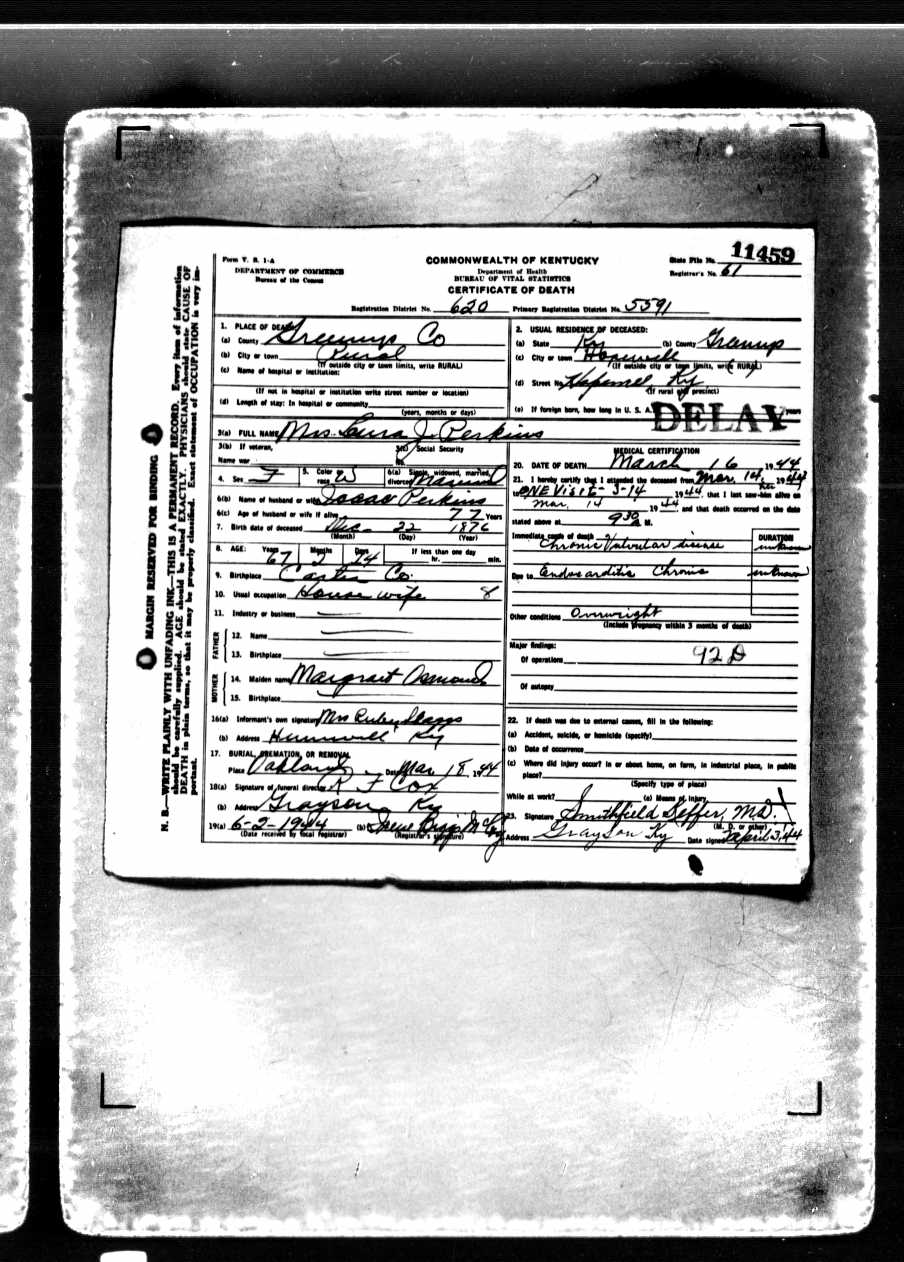 11459
Form V. S. 1-A
DEPARTMENT OF COMMERCE
Bureau of the Census
COMMONWEALTH OF KENTUCKY
Department of Health
BUREAU OF VITAL STATISTICS
CERTIFICATE OF DEATH
State File No.
Registrar's No. 61
Registration District No. 620 Primary Registration District No. 5591
MARGIN RESERVED FOR BINDING
N. B.—WRITE PLAINLY WITH UNFADING INK—THIS IS A PERMANENT RECORD. Every item of information
should be carefully supplied. AGE should be stated EXACTLY. PHYSICIANS should state CAUSE OF
DEATH in plain terms, so that it may be properly classified. Exact statement of OCCUPATION is very im-
portant.
1. PLACE OF DEATH
(a) County Greenup Co
(b) City or town Rural
(If outside city or town limits, write RURAL)
(c) Name of hospital or institution:
(If not in hospital or institution write street number or location)
(d) Length of stay: In hospital or community
(years, months or days)
2. USUAL RESIDENCE OF DECEASED:
(a) State Ky (b) County Greenup
(c) City or town Hopewell
(If outside city or town limits, write RURAL)
(d) Street No. Hopewell Ky
(If rural give precinct)
(e) If foreign born, how long in U. S. A. years
DELAY
3(a) FULL NAME Mrs. Laura J. Perkins
3(b) If veteran,
Name war
3(c) Social Security
No.
4. Sex F
5. Color or race W
6(a) Single, widowed, married, divorced Married
6(b) Name of husband or wife Isaac Perkins
6(c) Age of husband or wife if alive 77 Years
7. Birth date of deceased Dec 22 1876
(Month) (Day) (Year)
8. AGE: Years Months Days If less than one day
67 2 24 hr. min.
9. Birthplace Carter Co.
10. Usual occupation House wife 8
11. Industry or business
FATHER
12. Name
13. Birthplace
MOTHER
14. Maiden name Margrait Osmond
15. Birthplace
16(a) Informant's own signature Mrs Ruby Skaggs
(b) Address Hunnwell Ky
17. BURIAL, CREMATION, OR REMOVAL
Place Oakland Date Mar 18, 1944
18(a) Signature of funeral director R F Cox
(b) Address Grayson Ky
19(a) 6-2-1944 (b) Irene Biggs
(Date received by local registrar) (Registrar's signature)
MEDICAL CERTIFICATION
20. DATE OF DEATH March 16 1944
21. I hereby certify that I attended the deceased from Mar. 14, 1944
to ONE Visit - 3-14 1944, that I last saw him her alive on
Mar. 14 1944 and that death occurred on the date
stated above at 9 30 A M.
Immediate cause of death
Chronic Valvular disease
DURATION
unknown
Due to Endocarditis Chronic
unknown
Other conditions Overweight
(Include pregnancy within 3 months of death)
Major findings:
Of operations 92 D
Of autopsy
22. If death was due to external causes, fill in the following:
(a) Accident, suicide, or homicide (specify)
(b) Date of occurrence
(c) Where did injury occur? In or about home, on farm, in industrial place, in public
place?
(Specify type of place)
While at work? (e) Means of injury
23. Signature Smithfield Keffer, M.D.
(M. D. or other)
Address Grayson Ky Date signed April 3, 44